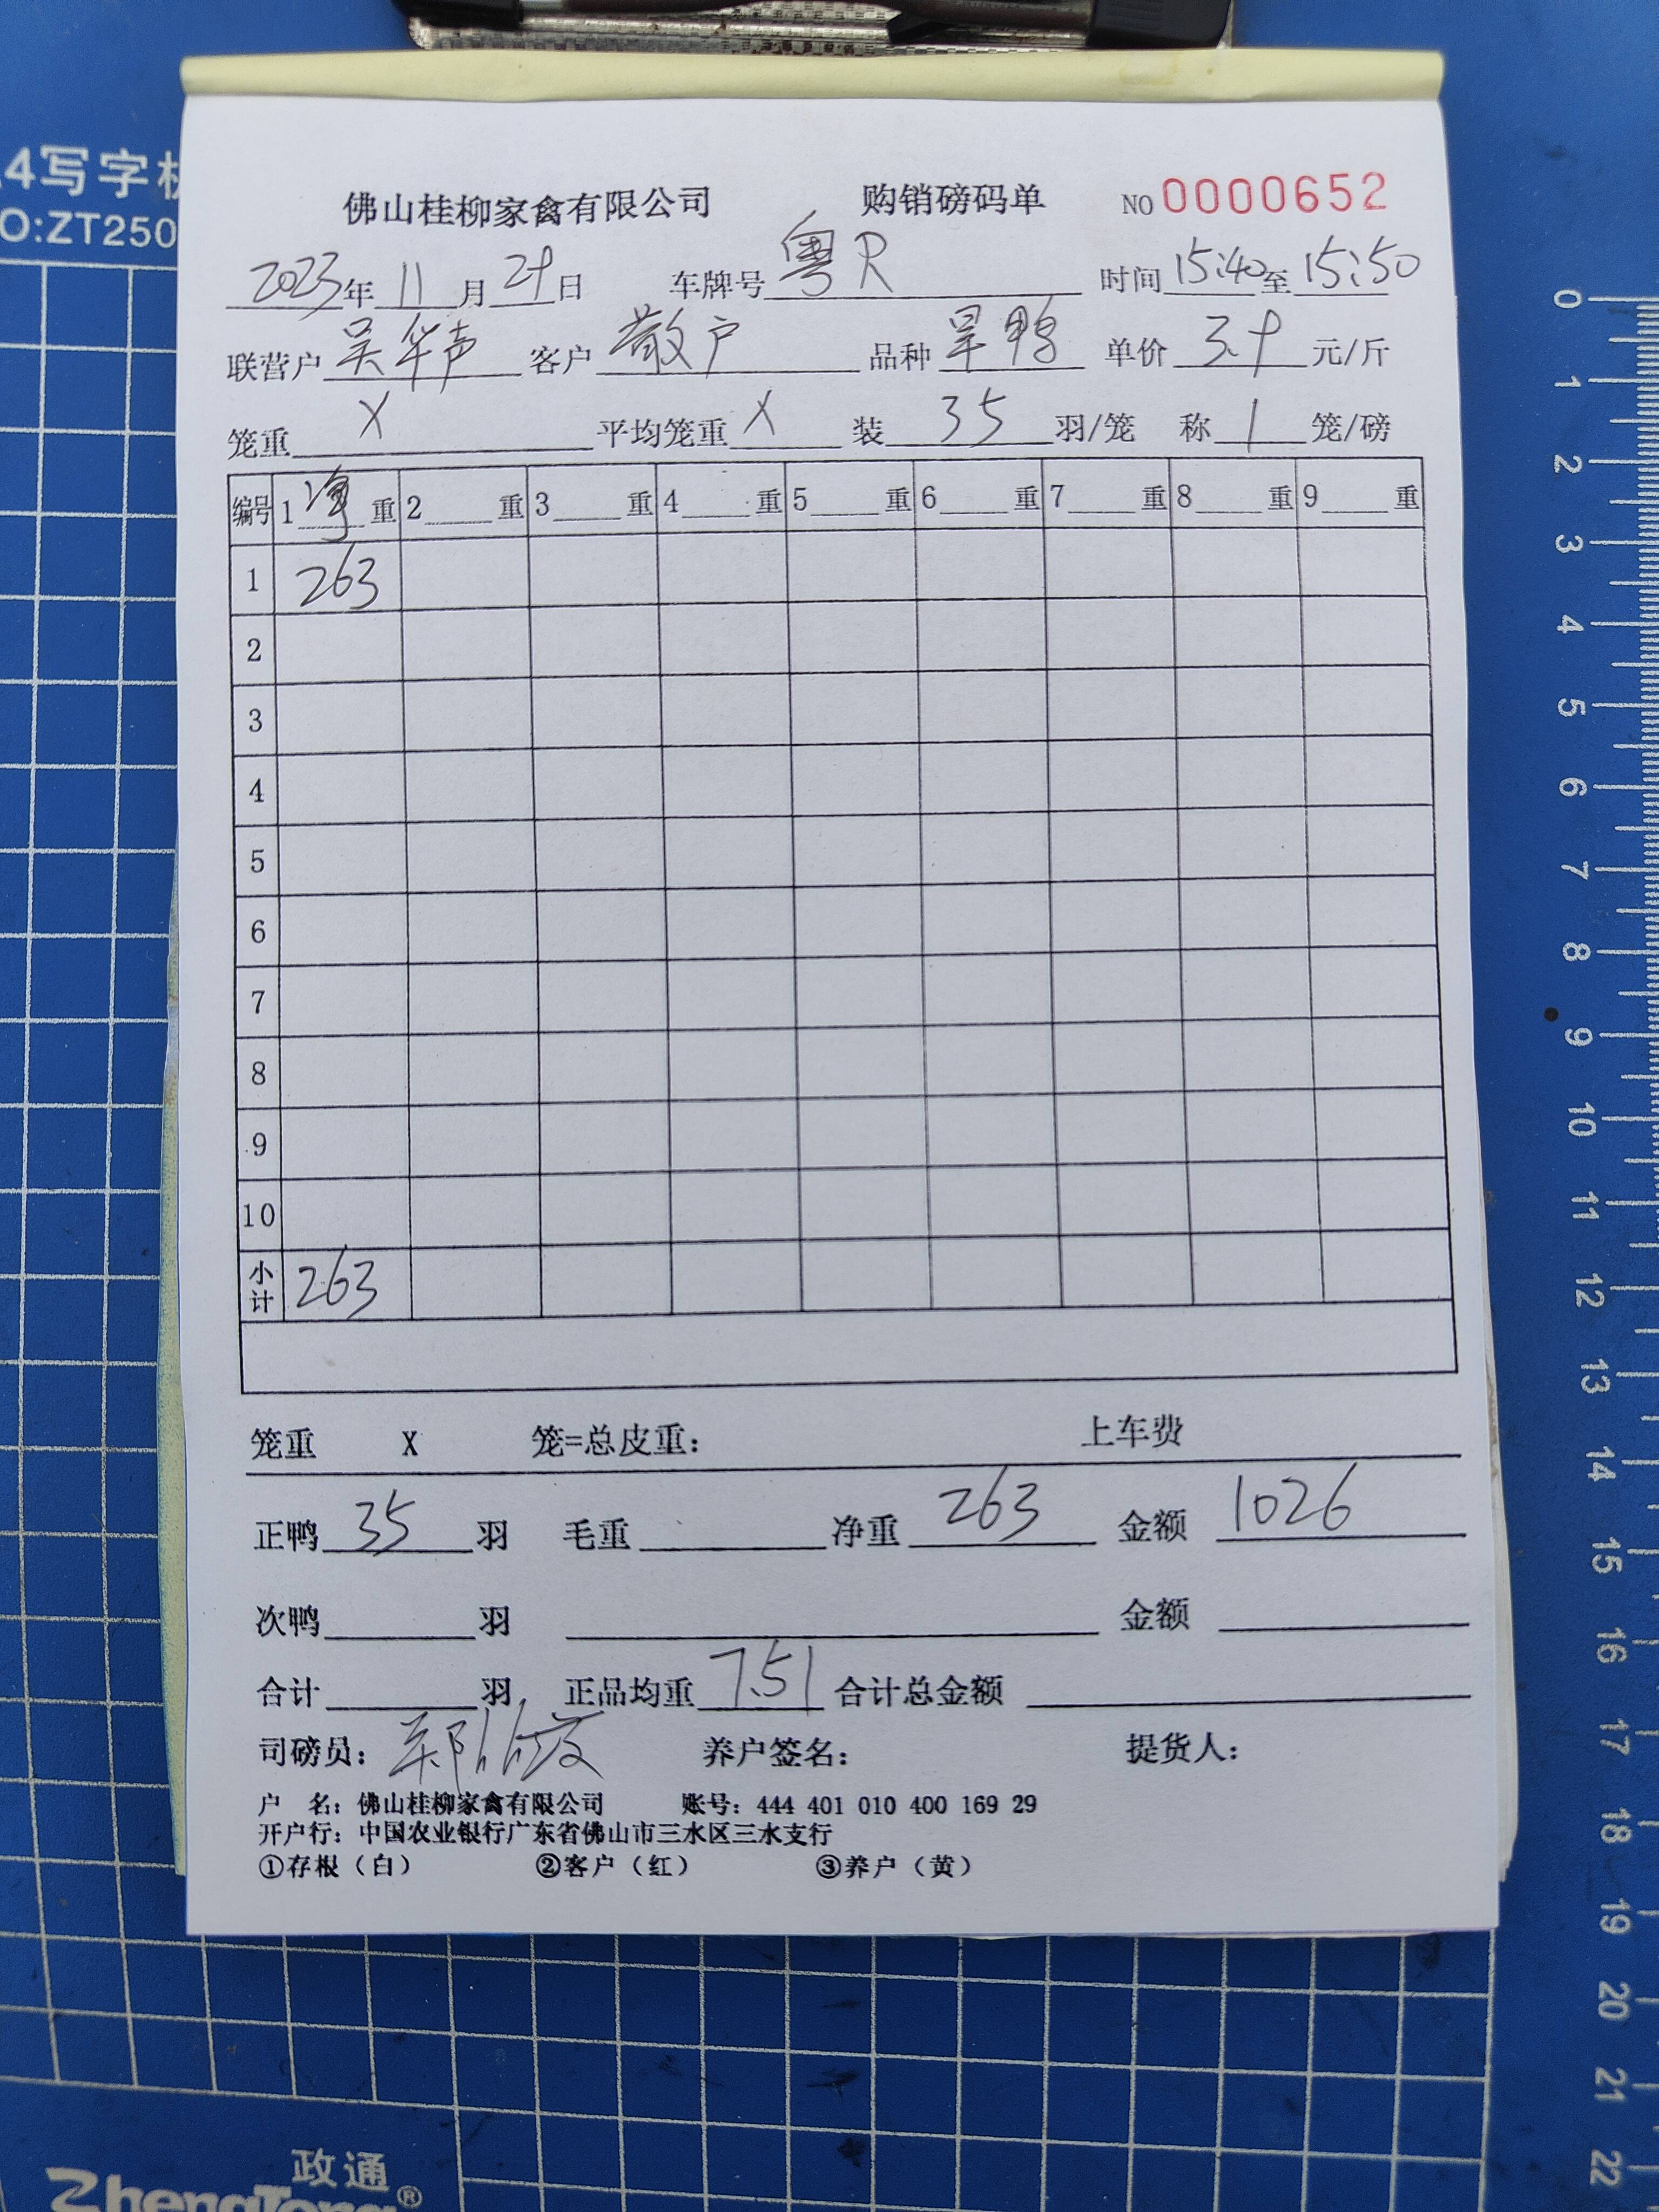 4写字板
NO:ZT250
佛山桂柳家禽有限公司 购销磅码单 NO 0000652
2023年 11 月 29 日 车牌号 粤R 时间 15:40 至 15:50
联营户 吴华声 客户 散户 品种 旱鸭 单价 3.9 元/斤
笼重 X 平均笼重 X 装 35 羽/笼 称 1 笼/磅
编号 1 净 重 2 重 3 重 4 重 5 重 6 重 7 重 8 重 9 重
1 263
2
3
4
5
6
7
8
9
10
小计 263
笼重 X 笼=总皮重: 上车费
正鸭 35 羽 毛重 净重 263 金额 1026
次鸭 羽 金额
合计 羽 正品均重 7.51 合计总金额
司磅员: 养户签名: 提货人:
户 名: 佛山桂柳家禽有限公司 账号: 444 401 010 400 169 29
开户行: 中国农业银行广东省佛山市三水区三水支行
①存根（白） ②客户（红） ③养户（黄）
政通
ZhengTong®
0
1
2
3
4
5
6
7
8
9
10
11
12
13
14
15
16
17
18
19
20
21
22